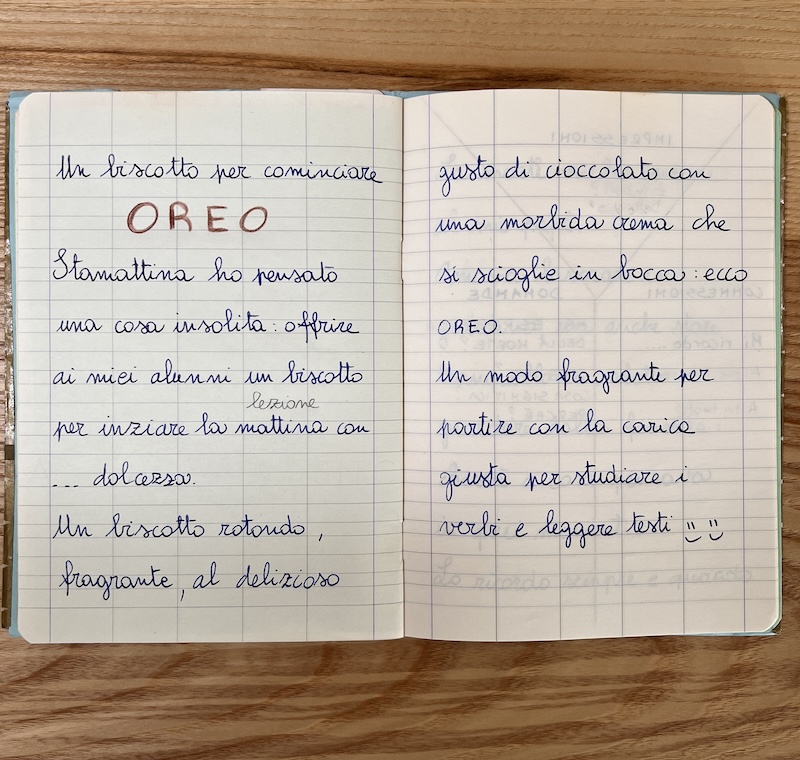 Un biscotto per cominciare
OREO
Stamattina ho pensato
una cosa insolita: offrire
ai miei alunni un biscotto
lezione
per inziare la mattina con
... dolcezza.
Un biscotto rotondo,
fragrante, al delizioso
gusto di cioccolato con
una morbida crema che
si scioglie in bocca: ecco
OREO.
Un modo fragrante per
partire con la carica
giusta per studiare i
verbi e leggere testi